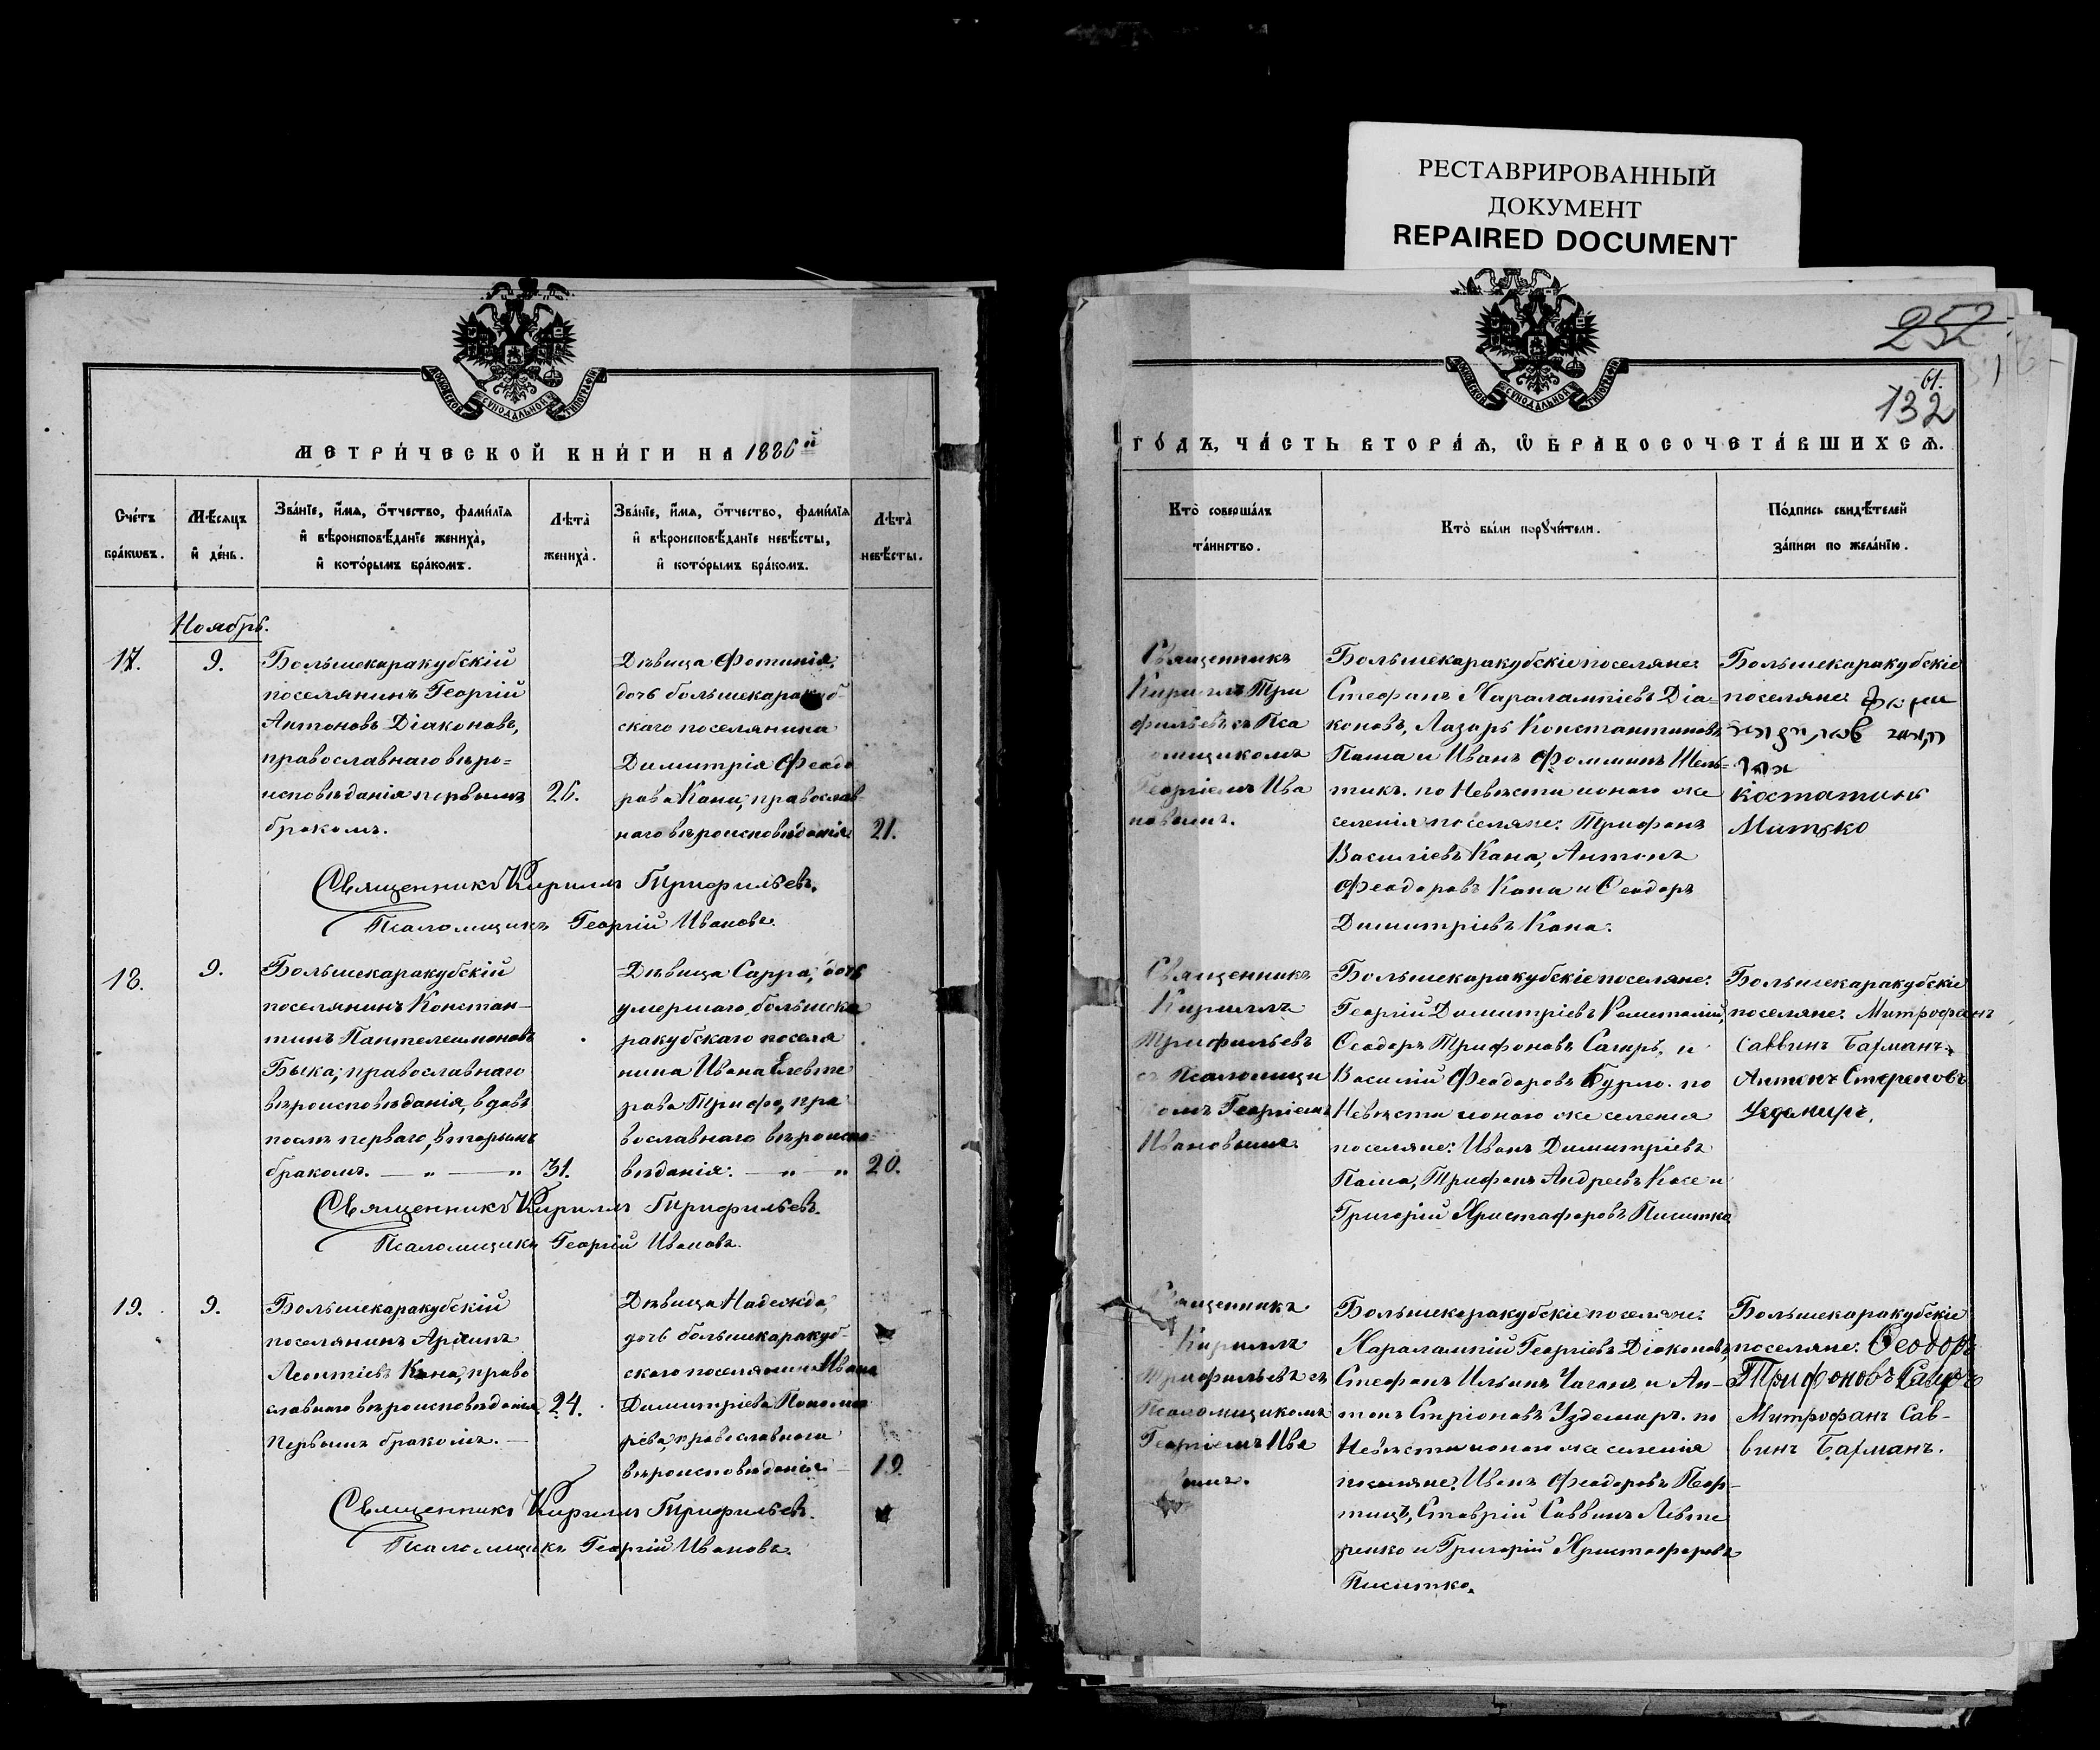 РЕСТАВРИРОВАННЫЙ
ДОКУМЕНТ
REPAIRED DOCUMENT
МОСКОВСКОЙ СѴНОДАЛЬНОЙ ТИПОГРАФІИ
МЕТРИ́ЧЕСКОЙ КНИ́ГИ НА 1886й
Сче́тъ бра́кѡвъ.
Мѣ́сяцъ и҆ де́нь.
Зва́нїе, и҆́мя, ѻ҆́тчество, фами́лїя
и҆ вѣроисповѣ́данїе жениха̀,
и҆ кото́рымъ бра́комъ.
Лѣта̀ жениха̀.
Зва́нїе, и҆́мя, ѻ҆́тчество, фами́лїя
и҆ вѣроисповѣ́данїе невѣ́сты,
и҆ кото́рымъ бра́комъ.
Лѣта̀ невѣ́сты.
Ноябрь.
17.
9.
Большекаракубскій
поселянинъ Георгій
Антоновъ Діаконовъ,
православнаго вѣро=
исповѣданія первымъ
бракомъ.
26.
Дѣвица Фотинія,
дочь большекаракуб-
скаго поселянина
Димитрія Феодо
рова Кана, православ-
наго вѣроисповѣданія
21.
Священникъ Кирилъ Трифильевъ.
Псаломщикъ Георгій Ивановъ.
18.
9.
Большекаракубскій
поселянинъ Констан-
тинъ Пантелеимоновъ
Быка, православнаго
вѣроисповѣданія, вдовъ
послѣ перваго, вторымъ
бракомъ. — „ — „
31.
Дѣвица Сарра, дочь
умершаго большека
ракубскаго поселя
нина Ивана Елевте
рова Трифо, пра
вославнаго вѣроиспо=
вѣданія. — „ — „
20.
Священникъ Кирилъ Трифильевъ.
Псаломщикъ Георгій Ивановъ.
19.
9.
Большекаракубскій
поселянинъ
Леонтіевъ Кана, право
славнаго вѣроисповѣданія
первымъ бракомъ. —
24.
Дѣвица Надежда,
дочь большекаракуб-
скаго поселянина Ивана
Димитріева Понома
рева, православнаго
вѣроисповѣданія —
19.
Священникъ Кирилъ Трифильевъ.
Псаломщикъ Георгій Ивановъ.
252
61.
132
МОСКОВСКОЙ СѴНОДАЛЬНОЙ ТИПОГРАФІИ
ГО́ДЪ, ЧА́СТЬ ВТОРА́Ѧ, Ѡ҆ БРАКОСОЧЕТА́ВШИХСѦ.
Кто̀ соверша́лъ
та́инство.
Кто̀ бы́ли порꙋчи́тели.
По́дпись свидѣ́телей
за́писи по жела́нїю.
Священникъ
Кириллъ Три
фильевъ съ Пса
ломщикомъ
Георгіемъ Ива
новымъ.
Большекаракубскіе поселяне:
Стефанъ Харалампіевъ Діа-
коновъ, Лазарь Константиновъ
Паша и Иванъ Фоминъ Шель-
тикъ. по Невѣсти ионаго же
селенія поселяне: Трифонъ
Василіевъ Кана, Антонъ
Феодоровъ Кана и Ѳеодоръ
Димитріевъ Кана.
Большекаракубскіе
поселяне:
Костатинъ
Священникъ
Кириллъ
Трифильевъ
съ Псаломщи
комъ Георгіемъ
Ивановымъ.
Большекаракубскіе поселяне:
Георгій Димитріевъ
Ѳеодоръ Трифоновъ Сагиръ, и
Василій Феодоровъ Бурло. по
Невѣсти ионаго же селенія
поселяне: Иванъ Димитріевъ
Паша, Трифонъ Андреевъ Косе и
Григорій Христофоровъ Писитко
Большекаракубскіе
поселяне: Митрофанъ
Саввинъ Бахманъ
Антонъ
Уздемиръ.
Священникъ
Кириллъ
Трифильевъ съ
Псаломщикомъ
Георгіемъ Ива
новымъ.
Большекаракубскіе поселяне:
Харалампій Георгіевъ Діаконовъ,
Стефанъ Ильинъ Чаганъ и Ан-
тонъ Уздемиръ. по
Невѣсти ионаго же селенія
поселяне: Иванъ Феодоровъ Пор-
тицъ, Ставрій Саввинъ Левте
ренко и Григорій Христофоровъ
Писитко.
Большекаракубскіе
поселяне: Ѳеодоръ
Трифоновъ Сагиръ
Митрофанъ Сав-
винъ Бахманъ.